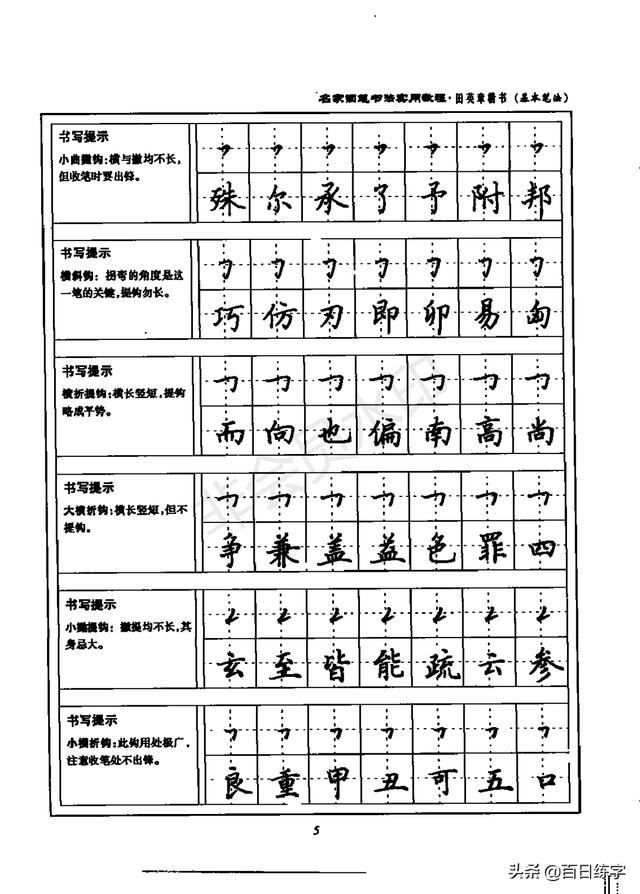 名家钢笔书法实用教程·田英章楷书（基本笔法）
书写提示
小曲撇钩:横与撇均不长,
但收笔时要出锋。
殊 尔 承 了 予 附 邦
书写提示
横斜钩: 拐弯的角度是这
一笔的关键,提钩勿长。
巧 仿 刃 即 卯 易 匈
书写提示
横折提钩:横长竖短,提钩
略成平势。
而 向 也 偏 南 高 尚
书写提示
大横折钩:横长竖短,但不
提钩。
争 兼 盖 益 色 罪 四
书写提示
小撇提钩: 撇提均不长,其
身忌大。
玄 至 皆 能 疏 云 参
书写提示
小横折钩:此钩用处极广,
注意收笔处不出锋。
良 重 甲 丑 可 五 口
5
非会员水印
头条 @百日练字